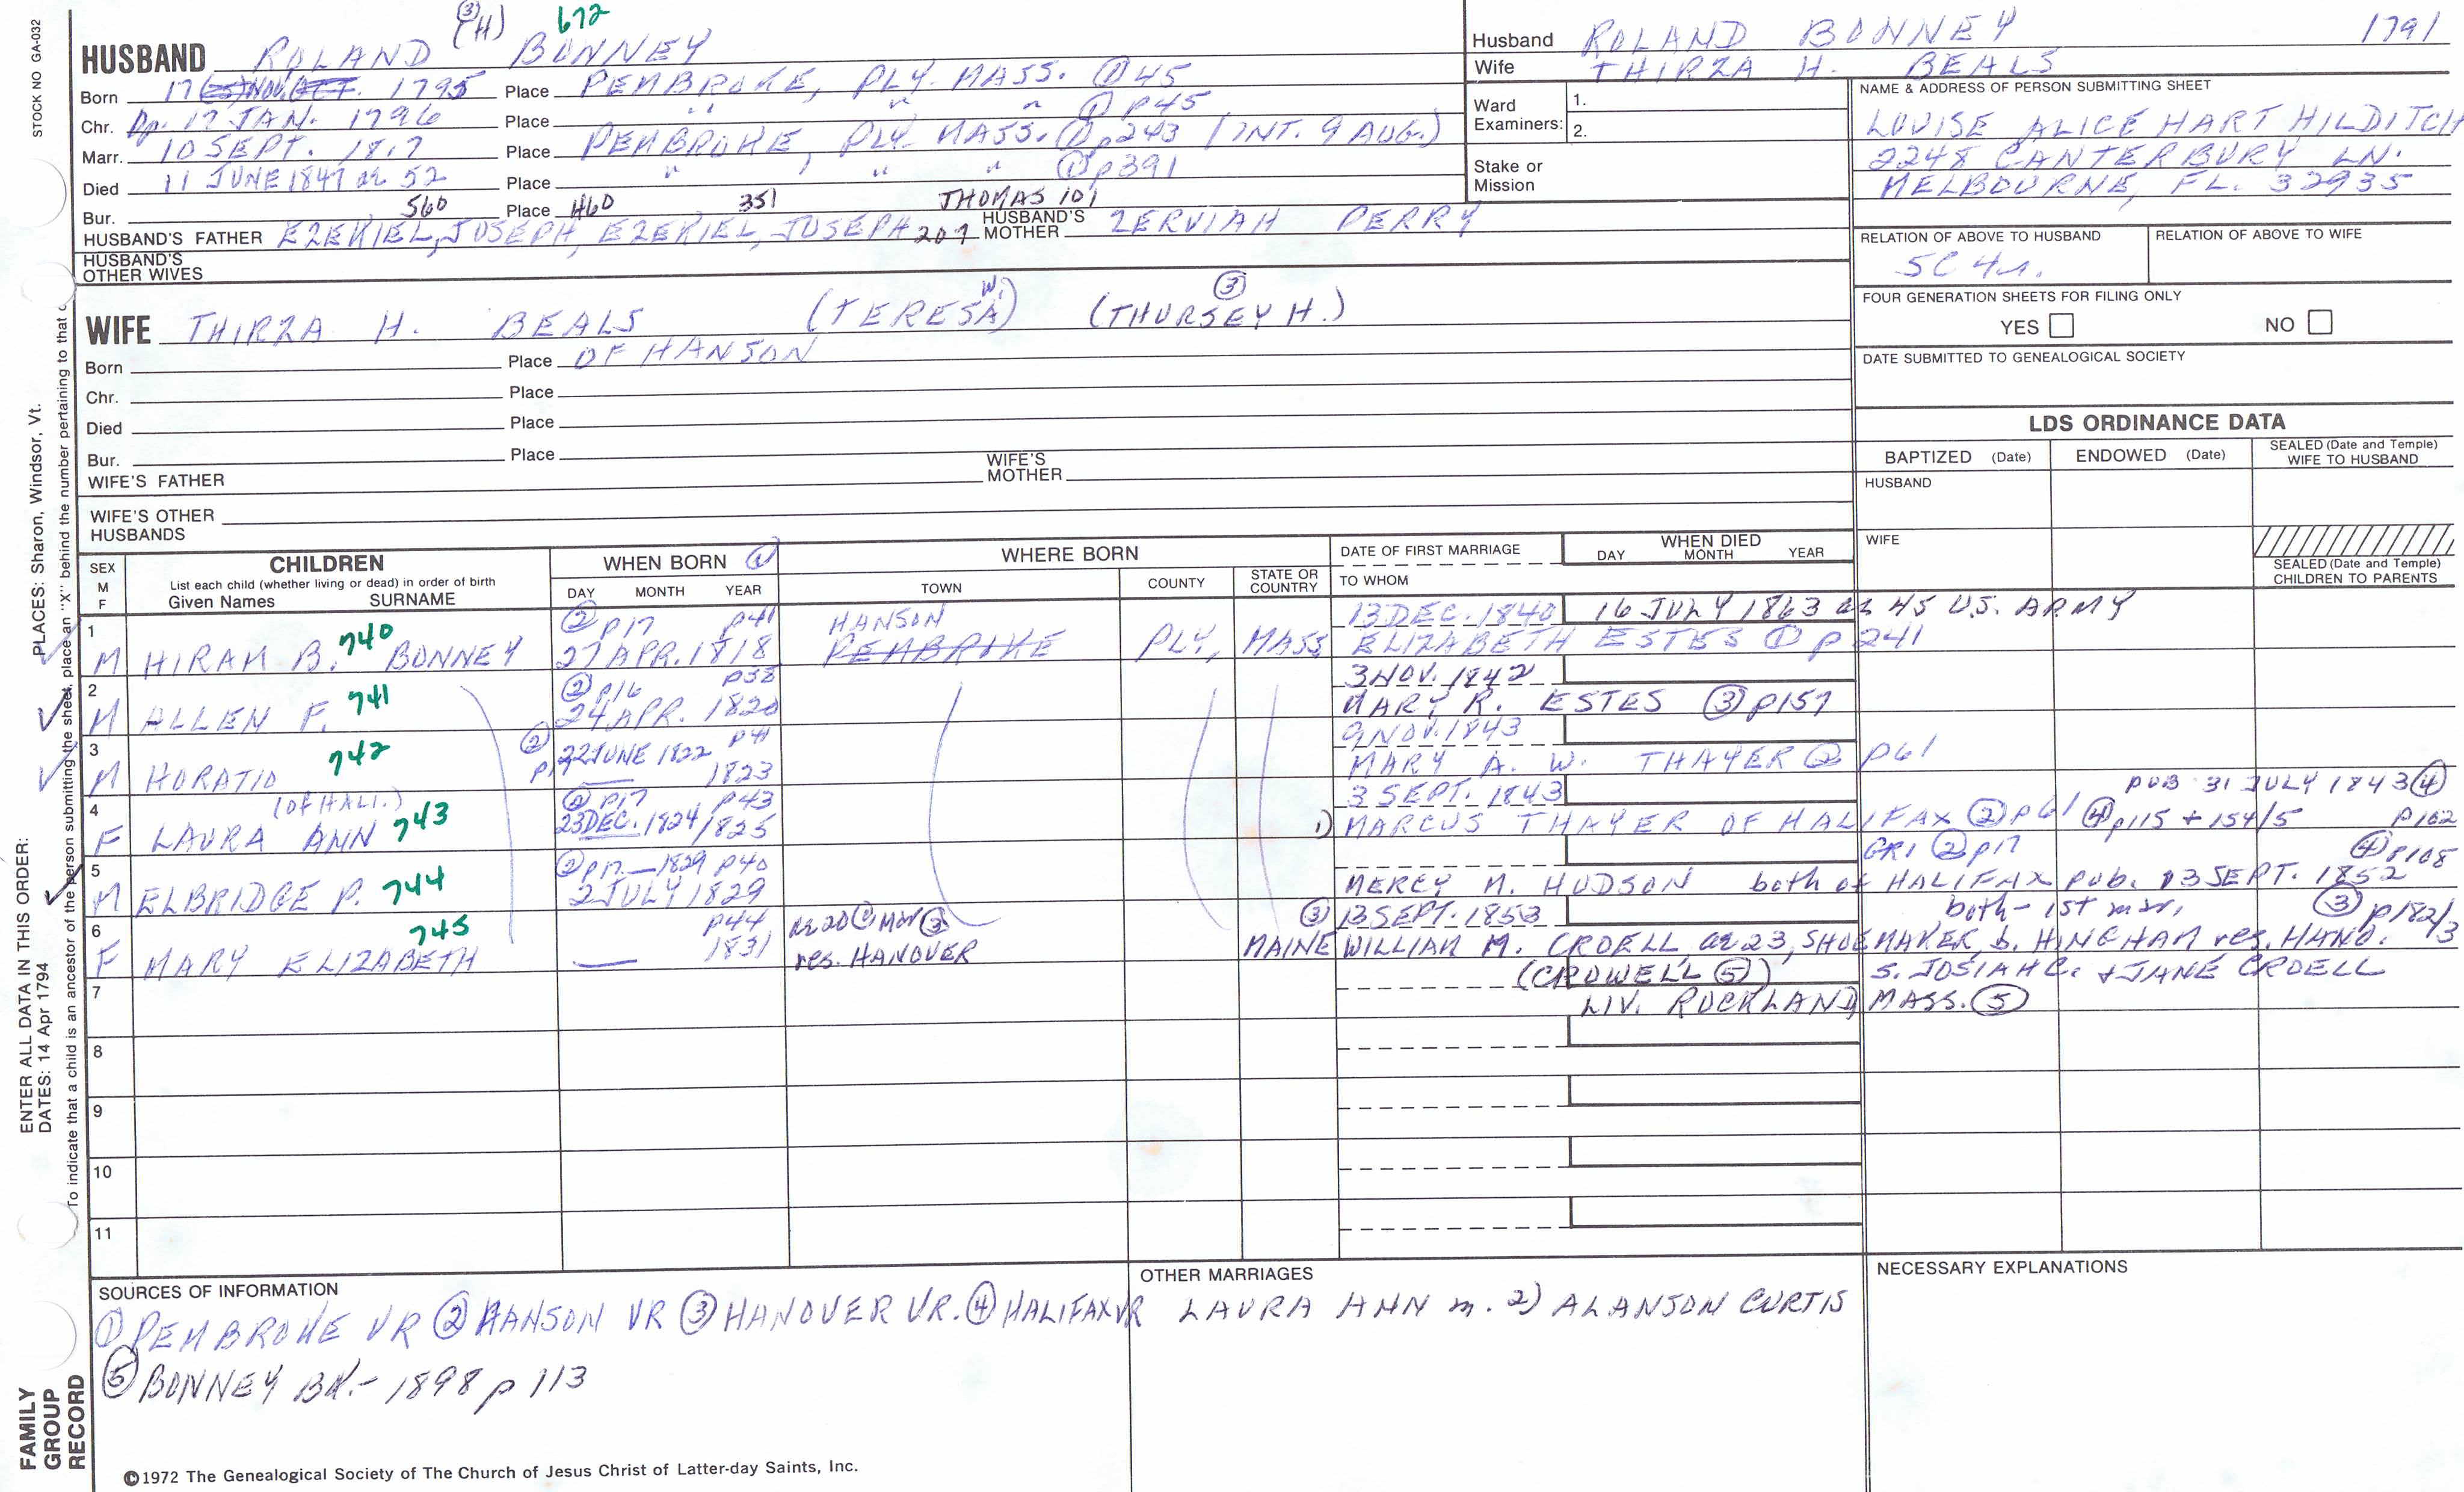 STOCK NO GA-032
③ (H) 672
HUSBAND ROLAND BONNEY
Born 17 NOV. OCT. 1795 Place PEMBROKE, PLY. MASS. ① 45
Chr. Bp. 17 JAN. 1796 Place " " " ① P45
Marr. 10 SEPT. 1817 Place PEMBROKE, PLY MASS. ① p243 (INT. 9 AUG.)
Died 11 JUNE 1847 ae 52 Place " , " " ① p391
Bur. 560 Place 460 351 THOMAS 101
HUSBAND'S FATHER EZEKIEL, JOSEPH, EZEKIEL, JOSEPH 207 HUSBAND'S MOTHER ZERVIAH PERRY
HUSBAND'S OTHER WIVES
WIFE THIRZA H. BEALS (TERESA W.) (THURSEY H.) ③
Born Place OF HANSON
Chr. Place
Died Place
Bur. Place
WIFE'S FATHER WIFE'S MOTHER
WIFE'S OTHER HUSBANDS
Husband ROLAND BONNEY 1791
Wife THIRZA H. BEALS
Ward Examiners: 1.
2.
Stake or Mission
NAME & ADDRESS OF PERSON SUBMITTING SHEET
LOUISE ALICE HART HILDITCH
2248 CANTERBURY LN.
MELBOURNE, FL. 32935
RELATION OF ABOVE TO HUSBAND RELATION OF ABOVE TO WIFE
5C 4r.
FOUR GENERATION SHEETS FOR FILING ONLY
YES NO
DATE SUBMITTED TO GENEALOGICAL SOCIETY
LDS ORDINANCE DATA
BAPTIZED (Date) ENDOWED (Date) SEALED (Date and Temple) WIFE TO HUSBAND
HUSBAND
WIFE
SEALED (Date and Temple) CHILDREN TO PARENTS
SEX M F
CHILDREN
List each child (whether living or dead) in order of birth
Given Names SURNAME
WHEN BORN ①
DAY MONTH YEAR
WHERE BORN
TOWN COUNTY STATE OR COUNTRY
DATE OF FIRST MARRIAGE
TO WHOM
WHEN DIED
DAY MONTH YEAR
1 ② P17 P41 HANSON 13 DEC. 1840 16 JULY 1863 ae 45 U.S. ARMY
M HIRAM B. 740 BONNEY 27 APR. 1818 PEMBROKE PLY, MASS ELIZABETH ESTES ① p 241
2 ② P16 P38 3 NOV. 1842
M ALLEN F. 741 24 APR. 1820 MARY R. ESTES ③ P157
3 ② P17 22 JUNE 1822 P41 9 NOV. 1843
M HORATIO 742 1823 MARY A. W. THAYER ② P61
4 (OF HALI.) ② P17 P43 3 SEPT. 1843 PUB 31 JULY 1843 ④
F LAURA ANN 743 23 DEC. 1824/1825 1) MARCUS THAYER OF HALIFAX ② P61 ④ p115 + 154/5 P102
5 ② P17 — 1829 P40 GR1 ② P17 ④ P108
M ELBRIDGE P. 744 2 JULY 1829 MERCY M. HUDSON both of HALIFAX PUB. 13 SEPT. 1852
6 P44 ae 20 @ mar ③ ③ 13 SEPT. 1853 both - 1st mar, ③ P182/3
F MARY ELIZABETH 745 1831 res. HANOVER MAINE WILLIAM M. CROELL, ae 23, SHOEMAKER, b. HINGHAM res. HANO.
7 (CROWELL ⑤) S. JOSIAH C. + JANE CROELL
LIV. ROCKLAND, MASS. ⑤
8
9
10
11
SOURCES OF INFORMATION
① PEMBROKE VR ② HANSON VR ③ HANOVER VR. ④ HALIFAX VR
⑤ BONNEY BK. - 1898 p 113
OTHER MARRIAGES
LAURA ANN m. 2) ALANSON CURTIS
NECESSARY EXPLANATIONS
©1972 The Genealogical Society of The Church of Jesus Christ of Latter-day Saints, Inc.
FAMILY GROUP RECORD
ENTER ALL DATA IN THIS ORDER:
DATES: 14 Apr 1794
PLACES: Sharon, Windsor, Vt.
To indicate that a child is an ancestor of the person submitting the sheet, place an "X" behind the number pertaining to that